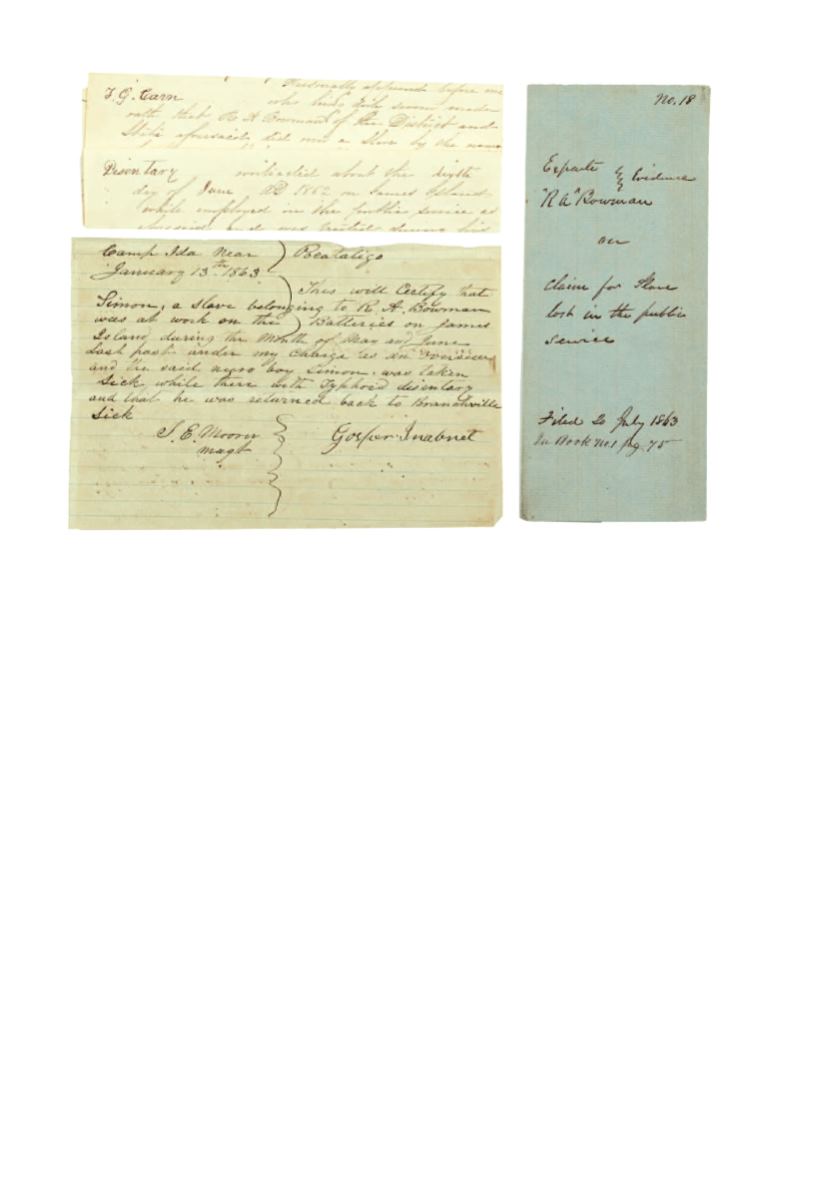 Personally appeared before me
T. G. Carn who being duly sworn made
oath that R A Bowman of the District and
State aforesaid, did own a Slave by the name
Disentary contracted about the
day of June AD 1862 on James Island
while employed in the public service as
aforesaid, and was treated during his
Camp Ida Near ) Pocataligo
January 13th 1863
This will Certify that
Simon, a Slave belonging to R. A. Bowman
was at work on the ) Batteries on James
Island during the Month of May and June
Last past under my Charge as an overseer
and the said negro boy Simon was taken
Sick while there with Typhoid disentary
and that he was returned back to Branchville
Sick
J. E. Moorer Gosper Inabnet
magt
No. 18
Exparte Evidence
"R A" Bowman
claim for Slave
lost in the public
service
Filed 20 July 1863
In Book No. 1 pg. 75